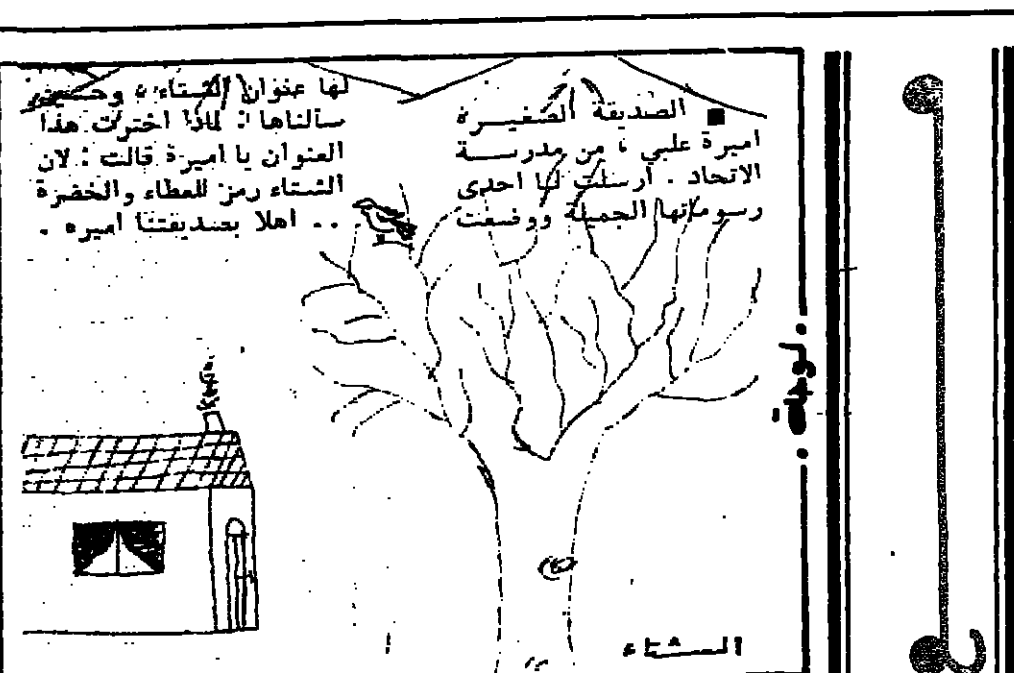 ■ الصديقة الصغيرة
اميرة علبي ، من مدرسة
الاتحاد . ارسلت لنا احدى
رسوماتها الجميلة ووضعت
لها عنوان الشتاء ، وحين
سألناها : لماذا اخترت هذا
العنوان يا اميرة قالت : لان
الشتاء رمز للعطاء والخضرة
. . اهلا بصديقتنا اميره .
. لوحة .
الشتاء